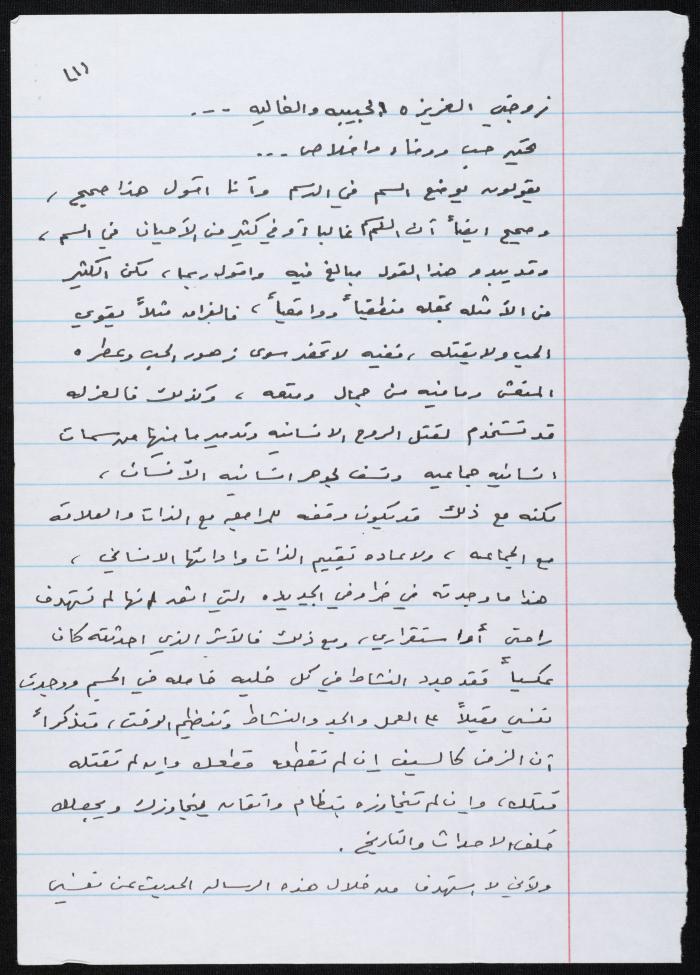 (١)
زوجتي العزيزه الحبيبه والغاليه ...
تحيه حب ووفاء واخلاص ...
يقولون يوضع السم في الدسم وأنا اقول هذا صحيح ،
وصحيح ايضاً أن الدسم غالبا أو في كثير من الأحيان في السم ،
وقد يبدو هذا القول مبالغ فيه واقول ربما ، لكن الكثير
من الأمثله تجعله منطقياً وواقعياً ، فالفراق مثلاً يقوي
الحب ولا يقتله ، ففيه لا تحضر سوى زهور الحب وعطره
المنعش وما فيه من جمال ومتعه ، وكذلك فالعزله
قد تستخدم لقتل الروح الانسانيه وتدمير ما فيها من سمات
انسانيه جماعيه ونسف لجوهر انسانيه الأنسان ،
لكنه مع ذلك قد تكون وقفه للمراجعه مع الذات والعلاقه
مع الجماعه ، ولاعاده تقييم الذات وادائها الانساني ،
هذا ما وجدته في ظروفي الجديده التي اعتقد انها لم تستهدف
راحتي أو استقراري ، ومع ذلك فالأثر الذي احدثته كان
عكسياً فقد جدد النشاط في كل خليه خامله في الجسم ووجدت
نفسي مقبلاً على العمل والجد والنشاط وتنظيم الوقت ، متذكراً
أن الزمن كالسيف إن لم تقطعه قطعك وإن لم تقتله
قتلك ، وإن لم تتجاوزه بنظام واتقان يتجاوزك ويجعلك
خلف الاحداث والتاريخ .
ولأني لا استهدف من خلال هذه الرساله الحديث عن نفسي